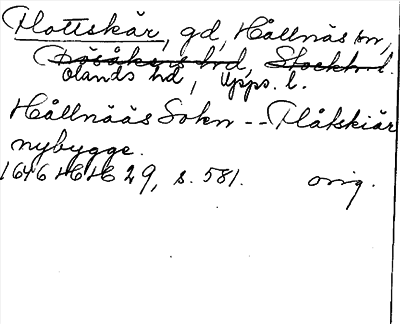 Flottskär, gd, Hållnäs sn,
Frösåkers hd, Stockh. l.
Olands hd, Upps. l.
Hållnääs Sokn -- Flåtskiär
nybygge.
1646 HH 29, s. 581. orig.